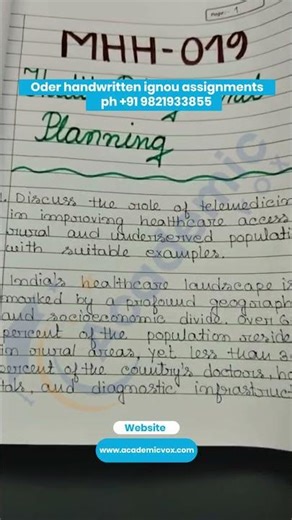 Page: 1
MHH-019
Oder handwritten ignou assignments
ph +91 9821933855
Planning
1. Discuss the role of telemedicin
in improving healthcare access
rural and underserved populati
with suitable examples.
India's healthcare landscape is
marked by a profound geograph
and socioeconomic divide. Over 6
percent of the population reside
in rural areas, yet less than 3
percent of the country's doctors, ho
tals and diagnostic infrastruct
Website
www.academicvox.com